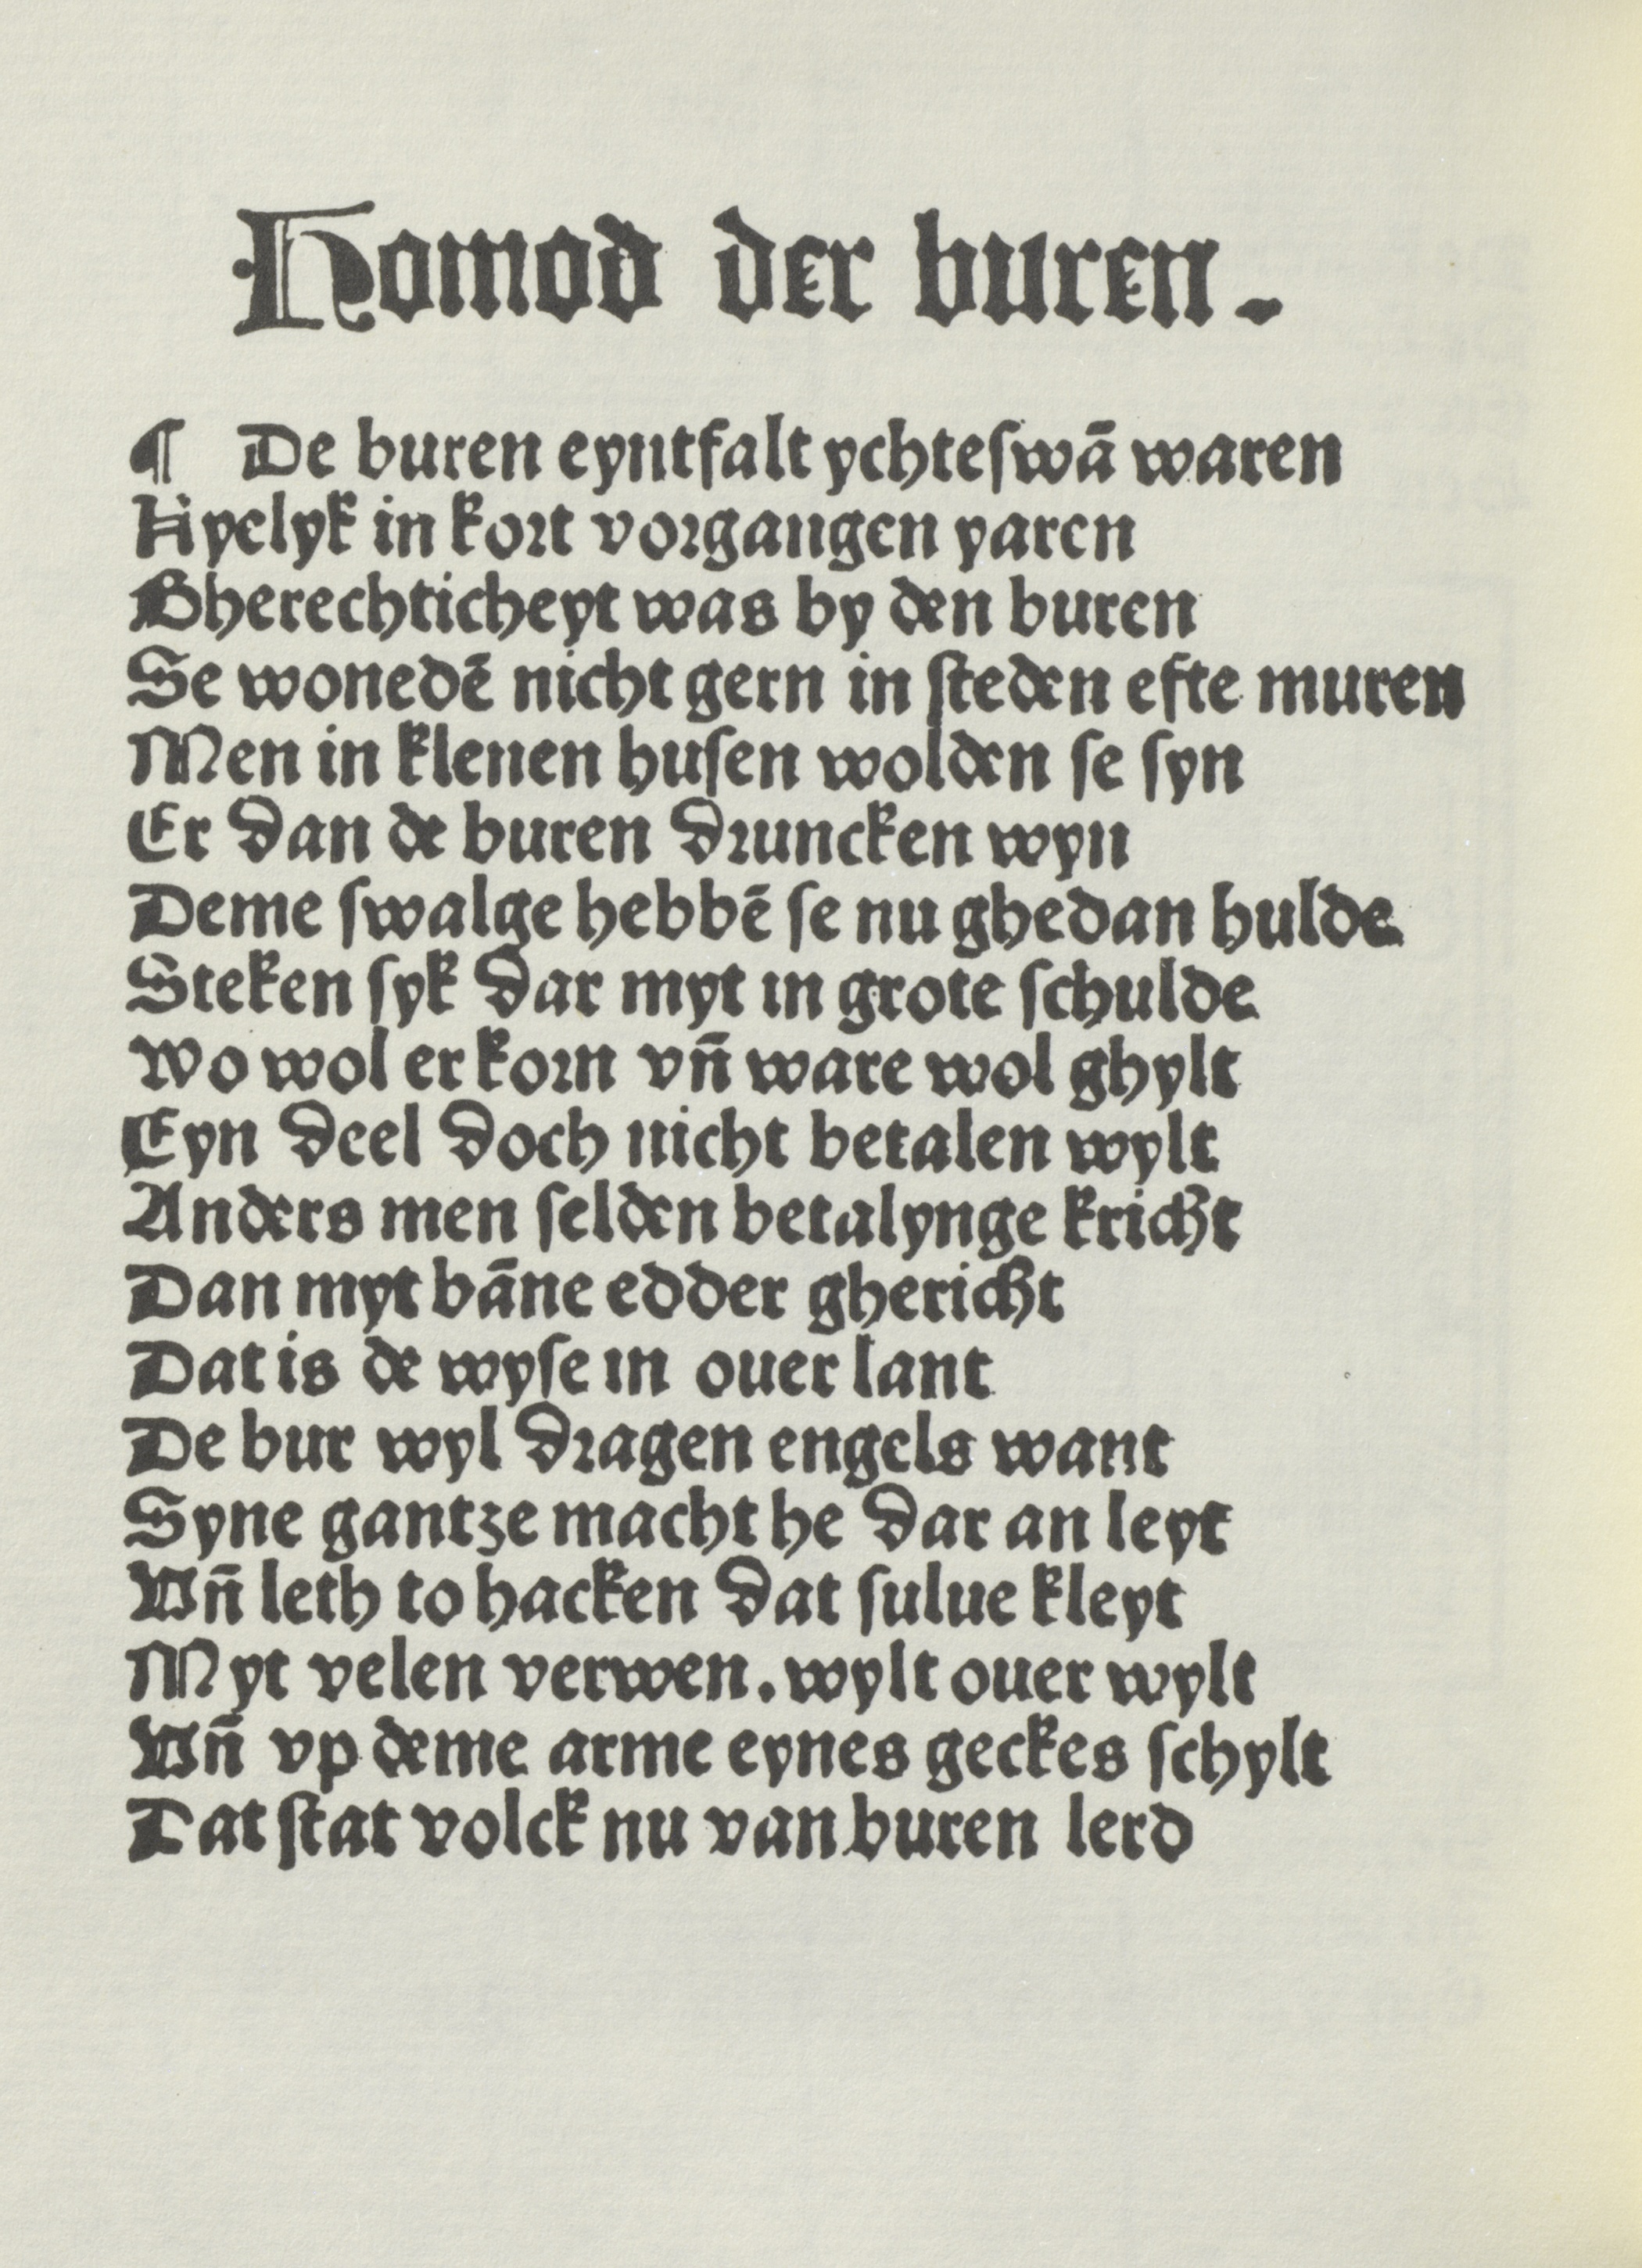 Homod der buren.
¶ De buren eyntfalt ychteſwā waren
Hyelyk in kort vorgangen yaren
Gherechticheyt was by den buren
Se wonedē nicht gern in ſteden efte muren
Men in klenen huſen wolden ſe ſyn
Er dan de buren druncken wyn
Deme ſwalge hebbē ſe nu ghedan hulde
Steken ſyk dar myt in grote ſchulde
Wo wol er korn vn̄ ware wol ghylt
Eyn deel doch nicht betalen wylt
Anders men ſelden betalynge kricht
Dan myt bāne edder ghericht
Dat is de wyſe in ouer lant
De bur wyl dragen engels want
Syne gantze macht he dar an leyt
Vn̄ leth to hacken dat ſulue kleyt
Myt velen verwen. wylt ouer wylt
Vn̄ vp deme arme eynes geckes ſchylt
Dat ſtat volck nu van buren lerd